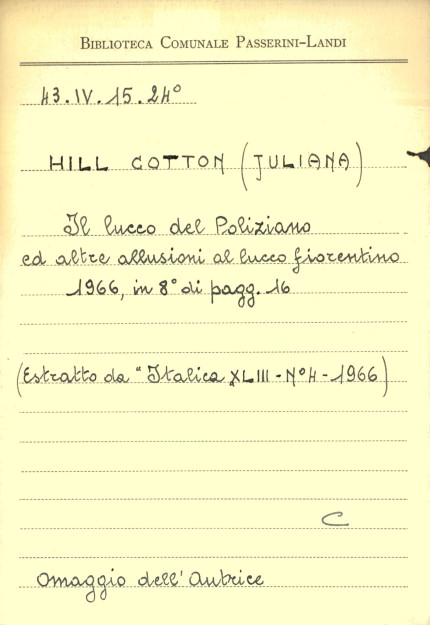 BIBLIOTECA COMUNALE PASSERINI-LANDI
43.IV.15.24°
HILL COTTON (JULIANA)
Il lucco del Poliziano
ed altre allusioni al lucco fiorentino
1966, in 8° di pagg. 16
(Estratto da "Italica XLIII - N° 4 - 1966)
C
Omaggio dell'Autrice